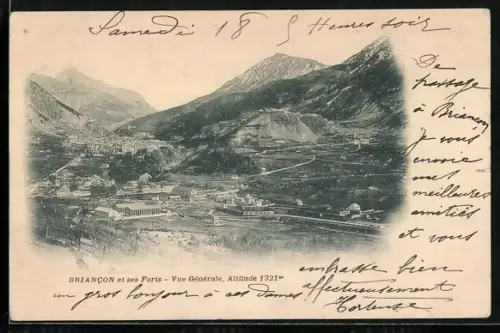 Samedi 18 5 Heures soir
De
passage
à Briançon
j'vous
envoie
mes
meilleures
amitiés
et vous
BRIANÇON et ses Forts - Vue Générale, Altitude 1321m
embrasse bien
affectueusement
Hortense
un gros bonjour à ces dames